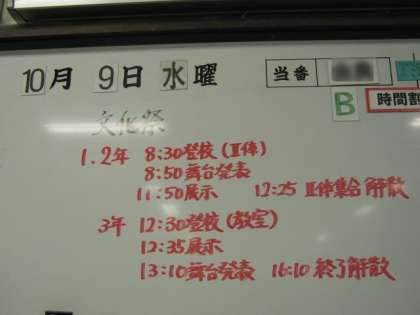 10月 9日 水曜 当番
B 時間割
文化祭
1.2年 8:30登校(Ⅱ体)
8:50舞台発表
11:50展示 12:25 Ⅱ体集合解散
3年 12:30登校(教室)
12:35展示
13:10舞台発表 16:10 終了解散